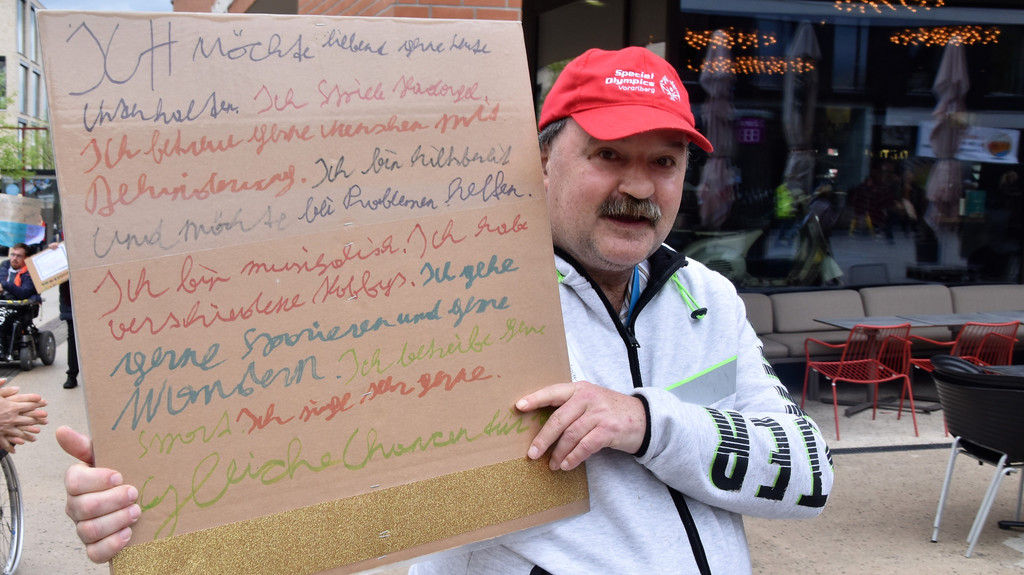 ICH möchte liebend gerne Leute
Unterhalten. Ich Spiele
Ich betreue gerne Menschen mit
Behinderung. Ich bin hilfbereit
und möchte bei Problemen helfen.
Ich bin musikalisch. Ich habe
verschiedene Hobbys. Ich gehe
gerne spazieren und gerne
Wandern. Ich betreibe gerne
Sport Ich singe sehr gerne.
gleiche Chancen für
Special
Olympics
Vorarlberg